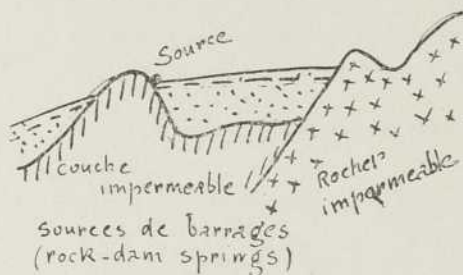 Source
couche
impermeable
Rocher
impermeable
sources de barrages
(rock-dam springs)